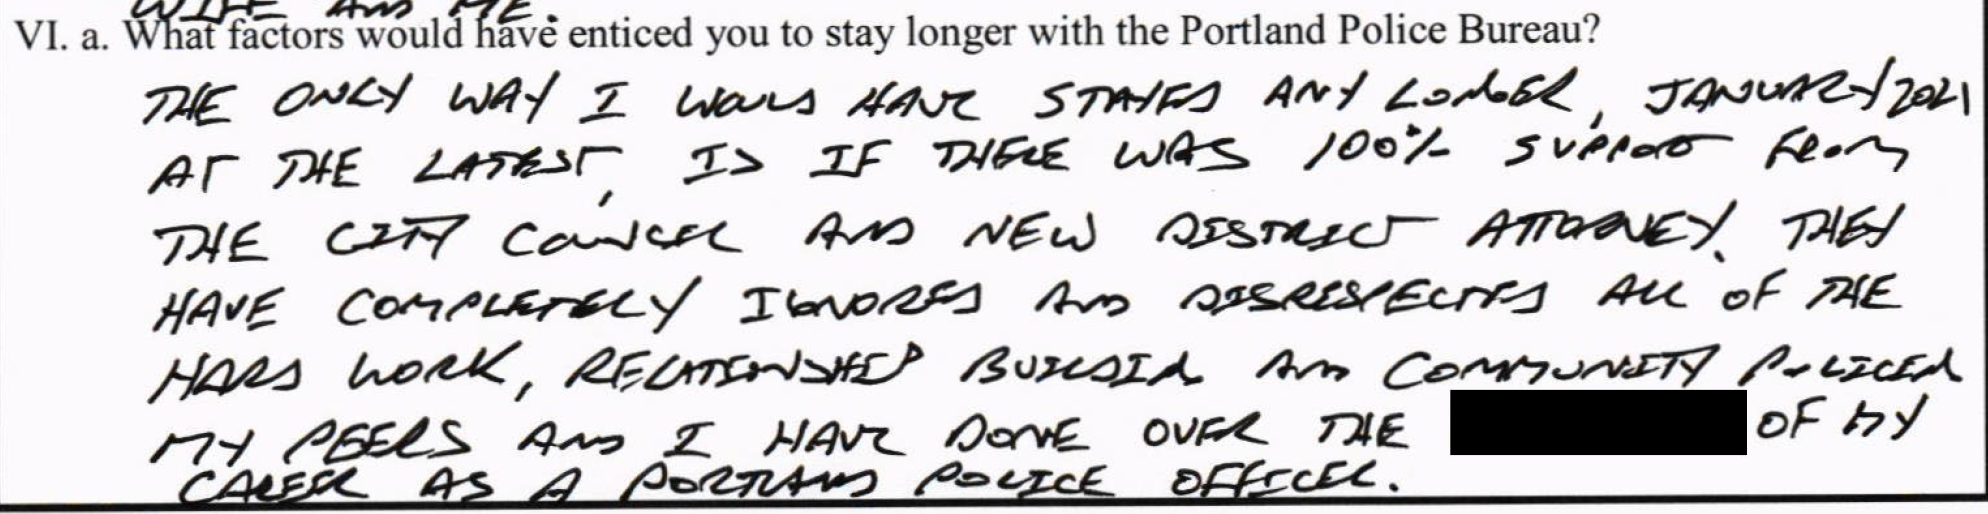 WIFE AND ME.
VI. a. What factors would have enticed you to stay longer with the Portland Police Bureau?
THE ONLY WAY I WOULD HAVE STAYED ANY LONGER, JANUARY 2021
AT THE LATEST, IS IF THERE WAS 100% SUPPORT FROM
THE CITY COUNCEL AND NEW DISTRICT ATTORNEY. THEY
HAVE COMPLETELY IGNORED AND DISRESPECTED ALL OF THE
HARD WORK, RELATIONSHIP BUILDING AND COMMUNITY POLICING
MY PEERS AND I HAVE DONE OVER THE OF MY
CAREER AS A PORTLAND POLICE OFFICER.